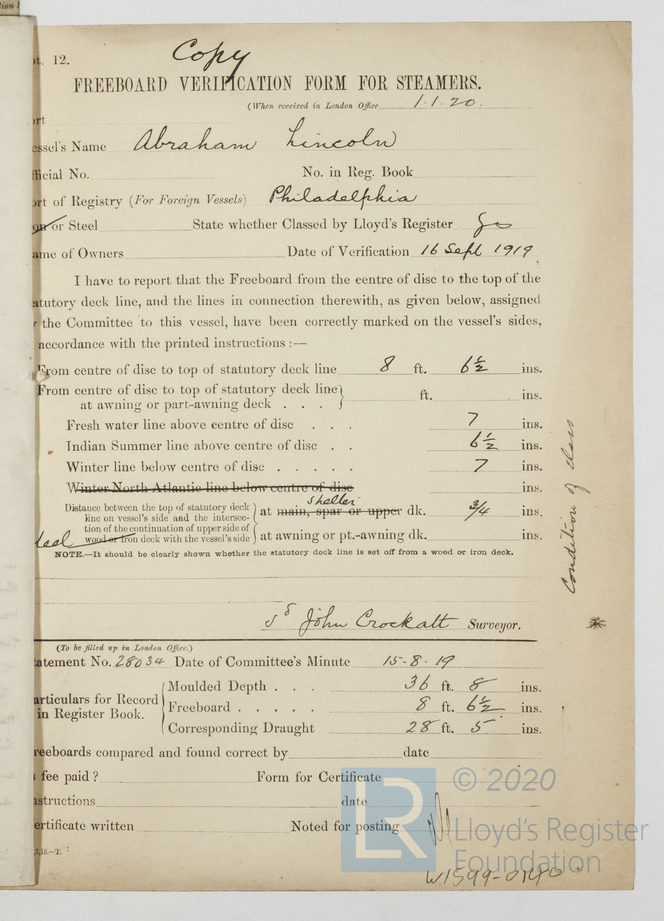 tion
Copy
t. 12.
FREEBOARD VERIFICATION FORM FOR STEAMERS.
(When received in London Office 1.1.20.
ort
essel's Name Abraham Lincoln
ficial No. No. in Reg. Book
ort of Registry (For Foreign Vessels) Philadelphia
on or Steel State whether Classed by Lloyd's Register Yes
ame of Owners Date of Verification 16 Sept 1919.
I have to report that the Freeboard from the centre of disc to the top of the
atutory deck line, and the lines in connection therewith, as given below, assigned
the Committee to this vessel, have been correctly marked on the vessel's sides,
accordance with the printed instructions :—
From centre of disc to top of statutory deck line 8 ft. 6½ ins.
From centre of disc to top of statutory deck line
at awning or part-awning deck . . . ft. ins.
Fresh water line above centre of disc . . . 7 ins.
Indian Summer line above centre of disc . . 6½ ins.
Winter line below centre of disc . . . . . 7 ins.
Winter North Atlantic line below centre of disc ins.
shelter
Distance between the top of statutory deck
line on vessel's side and the intersec-
tion of the continuation of upper side of
wood or iron deck with the vessel's side
at main, spar or upper dk. 3/4 ins.
at awning or pt.-awning dk. ins.
NOTE.—It should be clearly shown whether the statutory deck line is set off from a wood or iron deck.
Condition of class
sd John Crockatt Surveyor.
(To be filled up in London Office.)
atement No. 28034 Date of Committee's Minute 15-8-19
articulars for Record
in Register Book.
Moulded Depth . . . 36 ft. 8 ins.
Freeboard . . . . . 8 ft. 6½ ins.
Corresponding Draught 28 ft. 5 ins.
reeboards compared and found correct by date
fee paid? Form for Certificate
structions date
ertificate written Noted for posting
7,12.—T.
LR
© 2020
Lloyd's Register
Foundation
W1599-0140